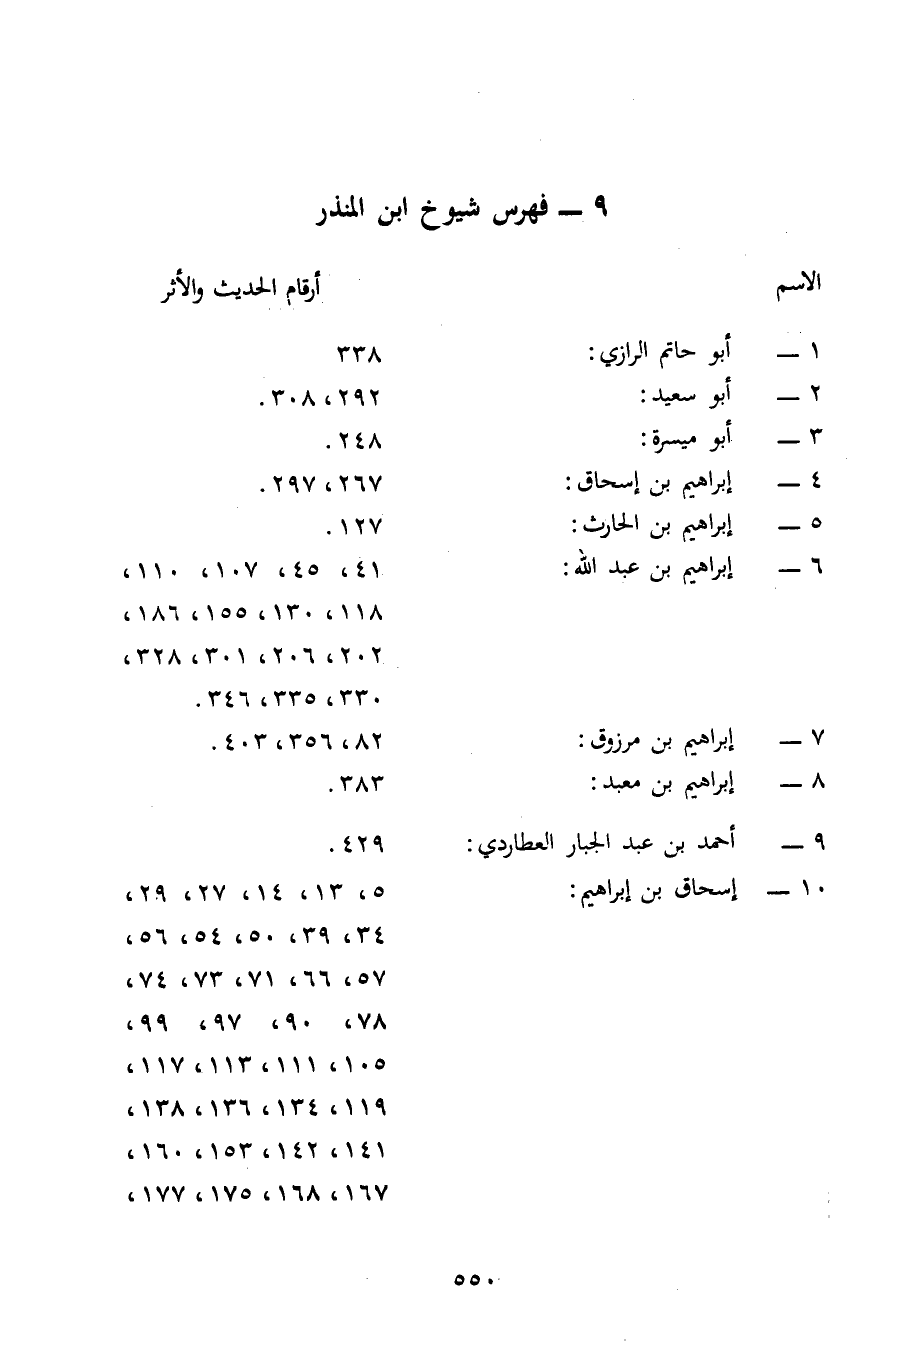 ٩ ــ فهرس شيوخ ابن المنذر
الاسم أرقام الحديث والأثر
١ ــ أبو حاتم الرازي: ٣٣٨
٢ ــ أبو سعيد: ٢٩٢، ٣٠٨.
٣ ــ أبو ميسرة: ٢٤٨.
٤ ــ إبراهيم بن إسحاق: ٢٦٧، ٢٩٧.
٥ ــ إبراهيم بن الحارث: ١٢٧.
٦ ــ إبراهيم بن عبد الله: ٤١، ٤٥، ١٠٧، ١١٠،
١١٨، ١٣٠، ١٥٥، ١٨٦،
٢٠٢، ٢٠٦، ٣٠١، ٣٢٨،
٣٣٠، ٣٣٥، ٣٤٦.
٧ ــ إبراهيم بن مرزوق: ٨٢، ٣٥٦، ٤٠٣.
٨ ــ إبراهيم بن معبد: ٣٨٣.
٩ ــ أحمد بن عبد الجبار العطاردي: ٤٢٩.
١٠ ــ إسحاق بن إبراهيم: ٥، ١٣، ١٤، ٢٧، ٢٩،
٣٤، ٣٩، ٥٠، ٥٤، ٥٦،
٥٧، ٦٦، ٧١، ٧٣، ٧٤،
٧٨، ٩٠، ٩٧، ٩٩،
١٠٥، ١١١، ١١٣، ١١٧،
١١٩، ١٣٤، ١٣٦، ١٣٨،
١٤١، ١٤٢، ١٥٣، ١٦٠،
١٦٧، ١٦٨، ١٧٥، ١٧٧،
٥٥٠